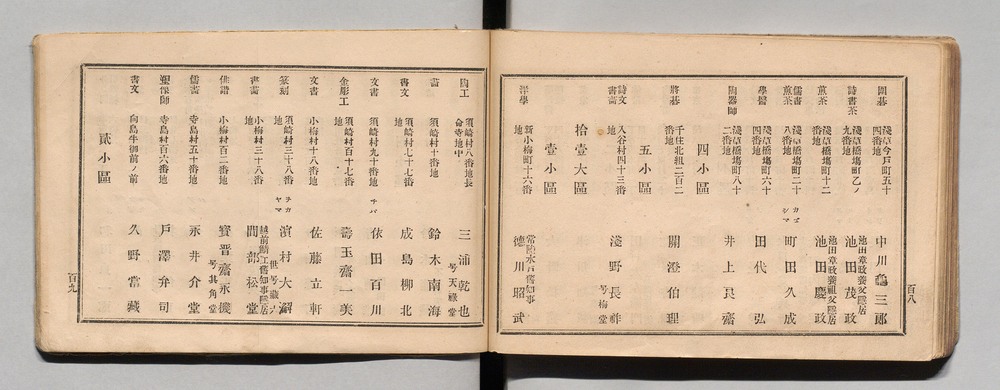 圍碁 淺草今戸町五十四番地 中川龜三郎
詩書茶 淺草橋塲町乙ノ九番地 池田章政養父隱居 池田茂政
煎茶 淺草橋塲町十二番地 池田章政養祖父隱居 池田慶政
儒書煎茶 淺草橋塲町二十八番地 カズシマ 町田久成
學醫 淺草橋塲町六十四番地 田代弘
陶器師 淺草橋塲町八十二番地 井上良齋
四小區
將碁 千住北組二百二番地 關澄伯理
五小區
詩文書畵 入谷村四十三番地 淺野長祚 号梅堂
拾壹大區
壹小區
洋學 新小梅町十六番地 常陸水戸舊知事 德川昭武
百八
陶工 須崎村八番地長命寺地中 三浦乾也 号天祿堂
畵 須崎村十番地 鈴木南海
書文 須崎村七十七番地 成島柳北
文書 須崎村九十番地 チバ 依田百川
金彫工 須崎村百十七番地 壽玉齋一美
文書 小梅村十八番地 佐藤立軒
篆刻 須崎村三十八番地 チカヤマ 濵村大澥 世号藏六
書畵 小梅村三十八番地 越前鯖江舊知事隱居 間部松堂
俳諧 小梅村百二番地 寳晋齋永機 号其角堂
儒畵 寺島村五十番地 永井介堂
塑像師 寺島村百六番地 戸澤弁司
書文 向島牛御前一ノ前 久野當藏
貳小區
百九